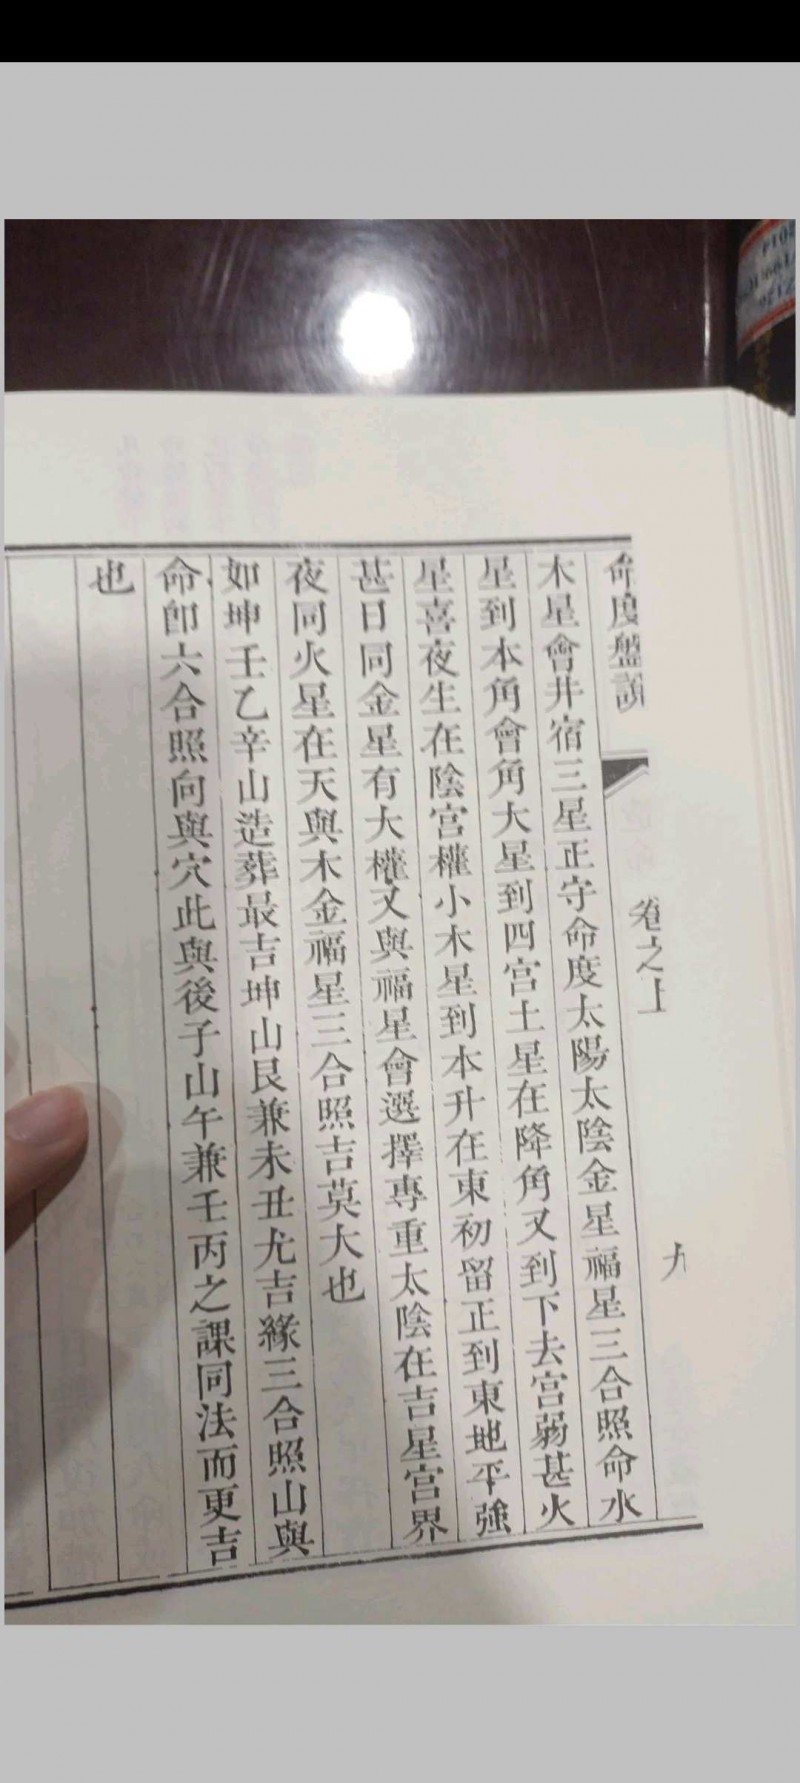 命度盤說
卷之上
九
木星會井宿三星正守命度太陽太陰金星福星三合照命水
星到本角會角大星到四宮土星在降角又到下去宮弱甚火
星喜夜生在陰宮權小木星到本升在東初留正到東地平強
甚日同金星有大權又與福星會選擇專重太陰在吉星宮界
夜同火星在天與木金福星三合照吉莫大也
如坤壬乙辛山造葬最吉坤山艮兼未丑尤吉緣三合照山與
命卽六合照向與穴此與後子山午兼壬丙之課同法而更吉
也